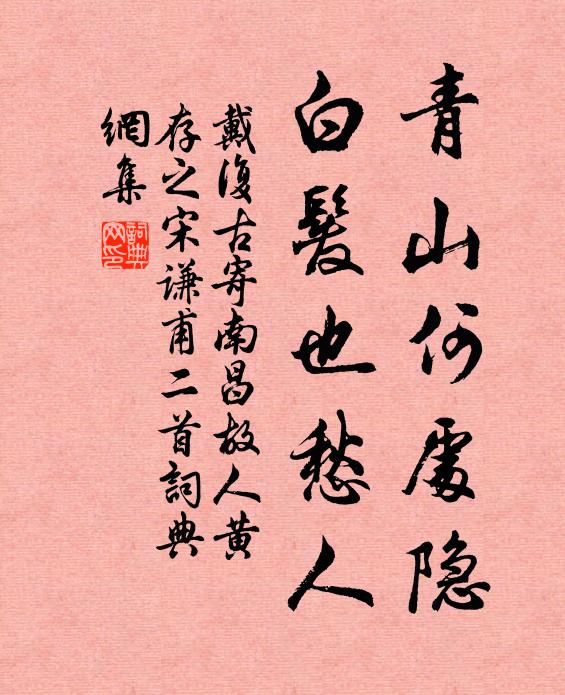 青山何處隐
白髮也愁人
戴復古寄南昌故人黄
存之宋谦甫二首詞典
網集
詞典
网印